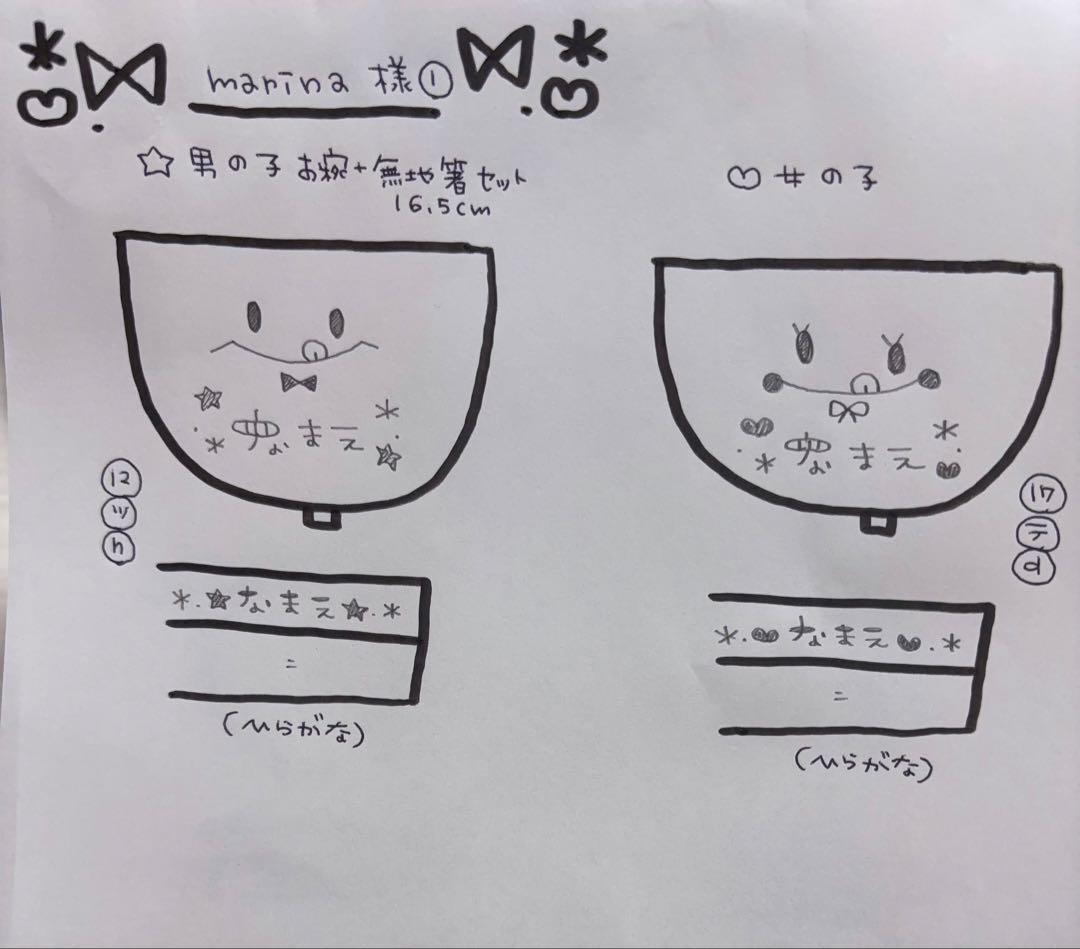 marina 様①
☆男の子 お椀+無地箸セット
16.5cm
♡女の子
なまえ
⑫
ツ
h
なまえ
=
(ひらがな)
なまえ
⑰
テ
d
なまえ
=
(ひらがな)